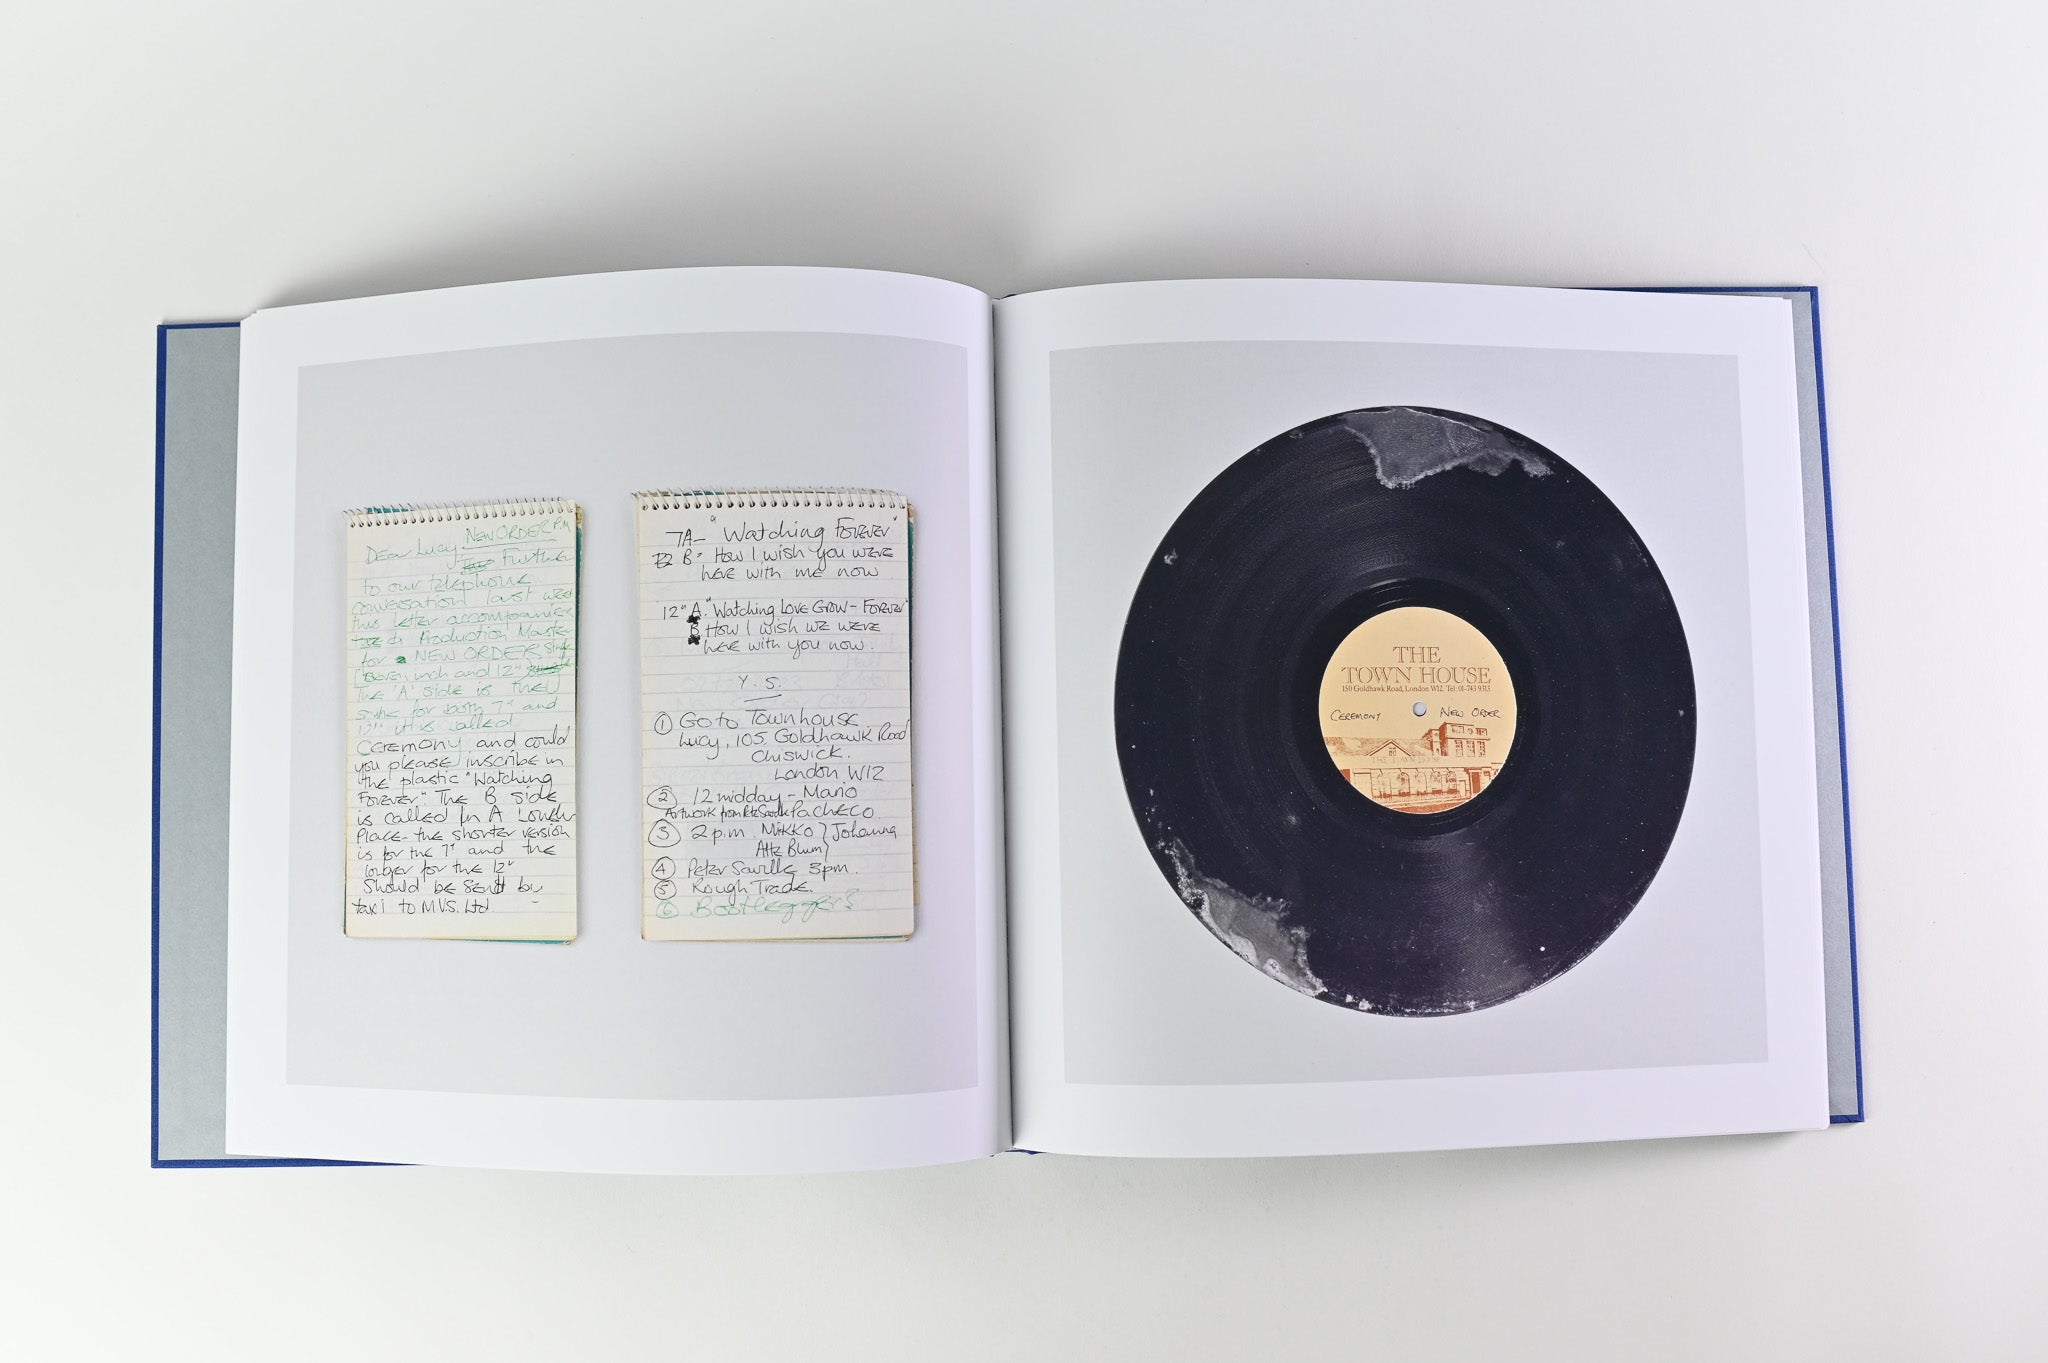 NEW ORDER P.M
Dear Lucy,
Further
to our telephone
conversation last week
this letter accompanies
Production Master
for NEW ORDER
inch and 12"
The 'A' side is the
same for both 7" and
12" it is called
CEREMONY and could
you please inscribe in
the plastic "Watching
Forever". The B side
is called In A Lonely
Place - the shorter version
is for the 7" and the
longer for the 12"
Should be sent by
taxi to M.V.S. Ltd.
7A- "Watching Forever"
B" How I wish you were
here with me now
12" A. "Watching Love Grow - Forever"
B. How I wish we were
here with you now.
Y. S.
① Go to Townhouse
Lucy, 105. Goldhawk Road
Chiswick.
London W12
② 12 midday - Mario
Artwork from Pete Saville PACHECO
③ 2 p.m. Mikko } Johanna
Atte Blum }
④ Peter Saville 3pm.
⑤ Rough Trade.
⑥ Bootleggers
THE
TOWN HOUSE
150 Goldhawk Road, London W12. Tel: 01-743 9313
CEREMONY NEW ORDER
THE TOWN HOUSE